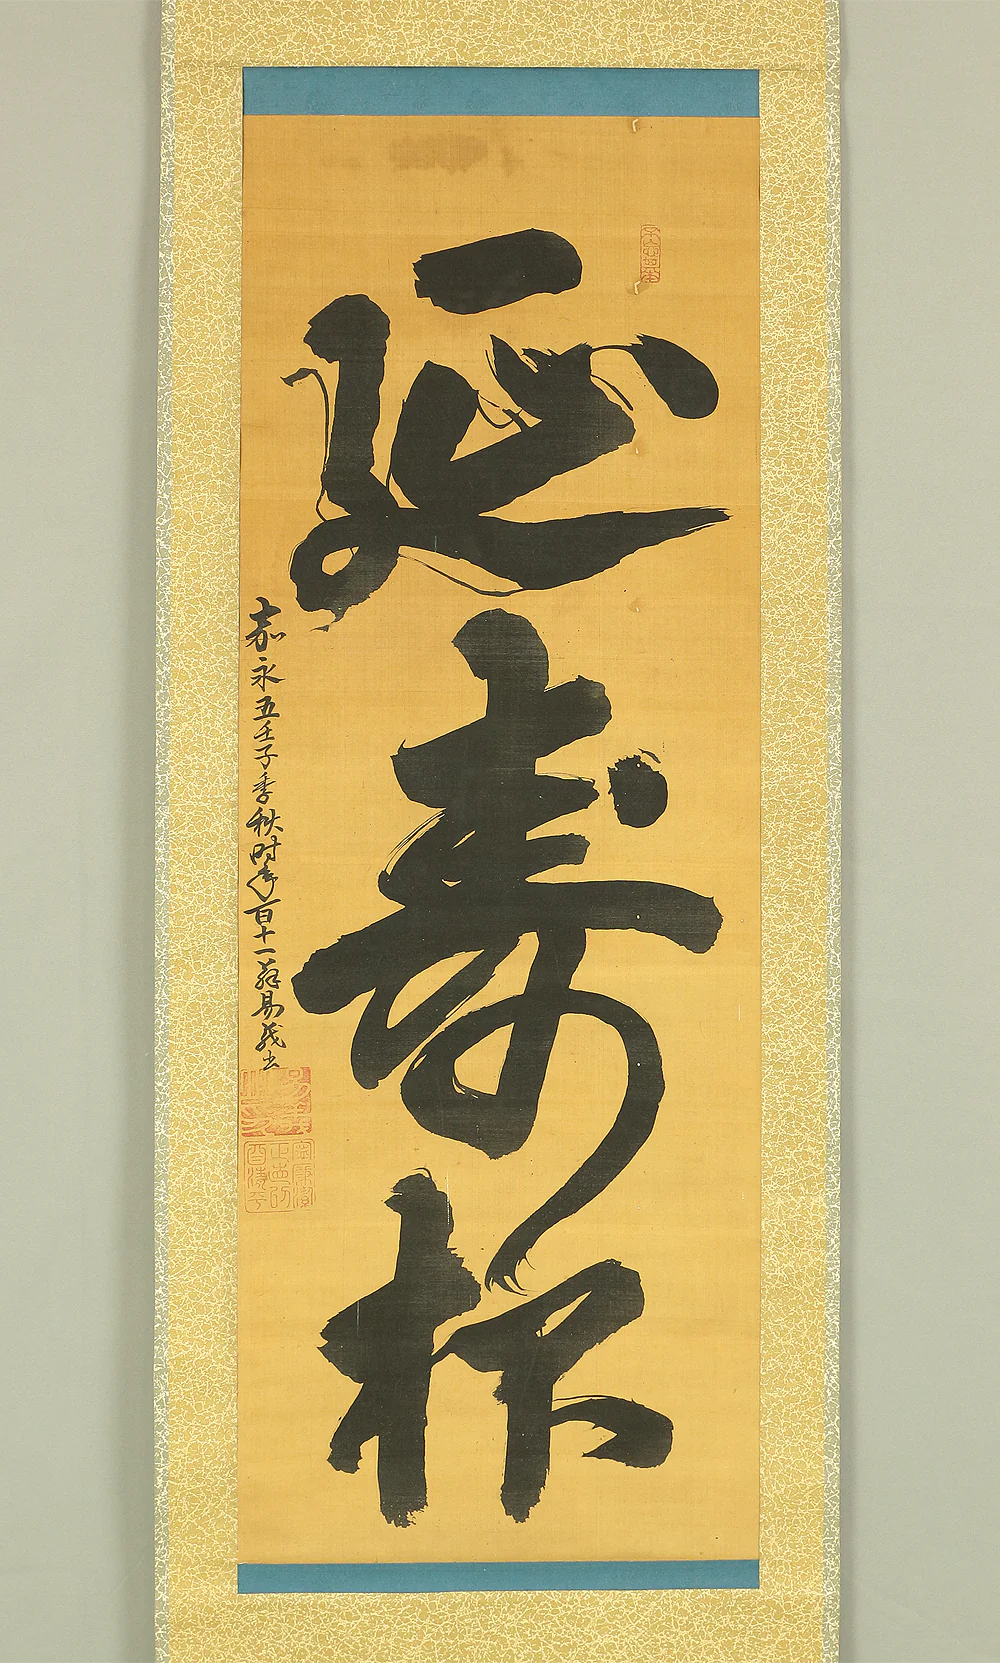 延壽杯
嘉永五壬子季秋时年百十一翁易義書